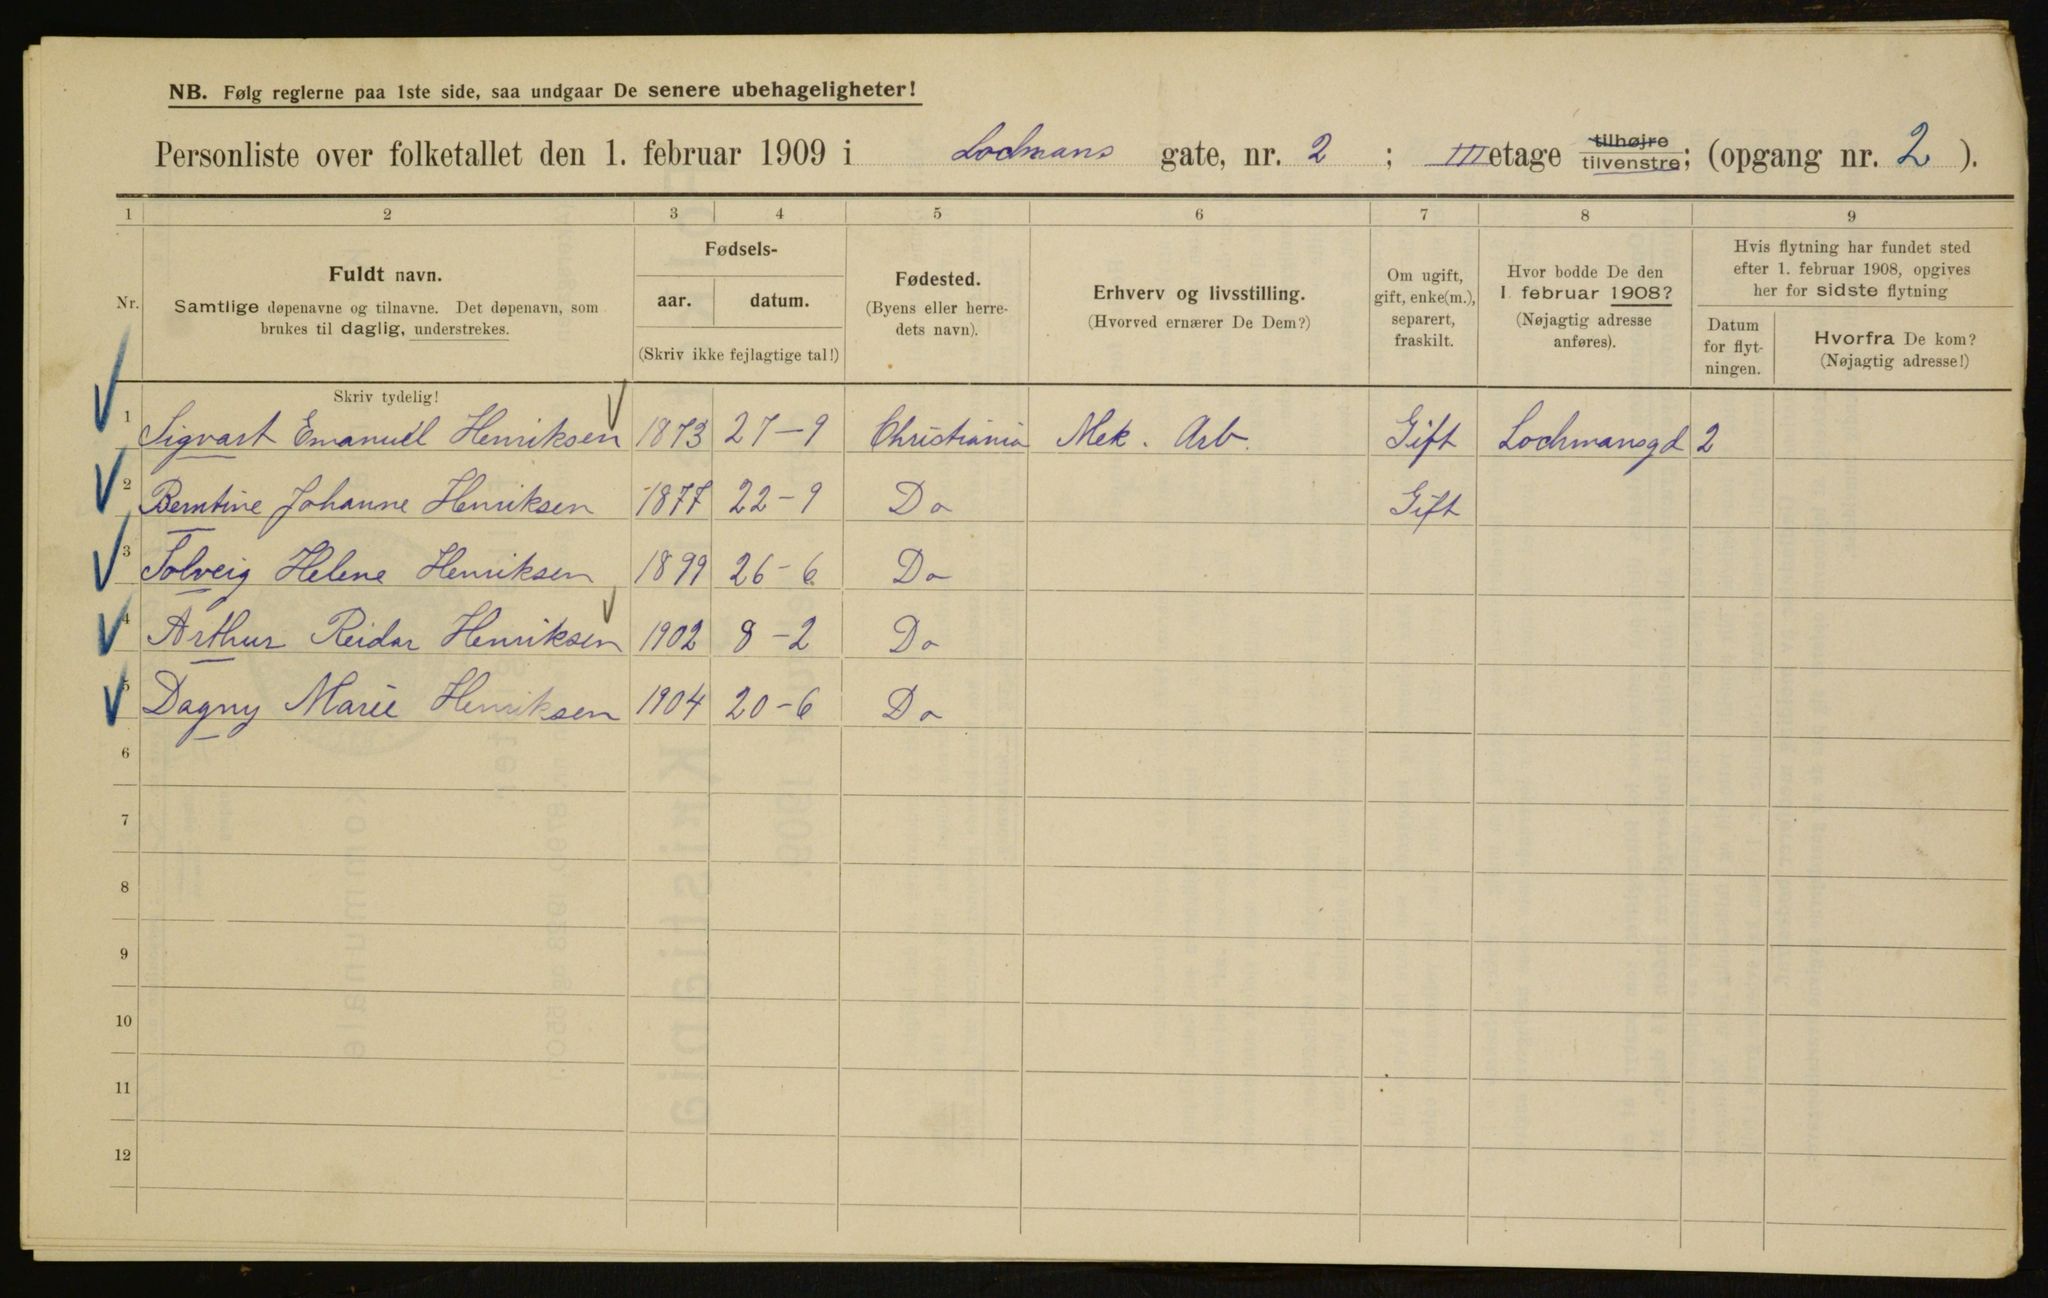 NB. Følg reglerne paa 1ste side, saa undgaar De senere ubehageligheter!
Personliste over folketallet den 1. februar 1909 i Lochmans gate, nr. 2 ; III etage tilhøjre tilvenstre; (opgang nr. 2 ).
1 2 3 4 5 6 7 8 9
Nr.
Fuldt navn.
Samtlige døpenavne og tilnavne. Det døpenavn, som
brukes til daglig, understrekes.
Fødsels-
aar. datum.
(Skriv ikke fejlagtige tal!)
Fødested.
(Byens eller herre-
dets navn).
Erhverv og livsstilling.
(Hvorved ernærer De Dem?)
Om ugift,
gift, enke(m.),
separert,
fraskilt.
Hvor bodde De den
1. februar 1908?
(Nøjagtig adresse
anføres).
Hvis flytning har fundet sted
efter 1. februar 1908, opgives
her for sidste flytning
Datum
for flyt-
ningen.
Hvorfra De kom?
(Nøjagtig adresse!)
Skriv tydelig!
1 Sigvart Emanuel Henriksen 1873 27-9 Christiania Mek. Arb. Gift Lochmansgd 2
2 Berntine Johanne Henriksen 1877 22-9 Do Gift
3 Solveig Helene Henriksen 1899 26-6 Do
4 Arthur Reidar Henriksen 1902 8-2 Do
5 Dagny Marie Henriksen 1904 20-6 Do
6
7
8
9
10
11
12